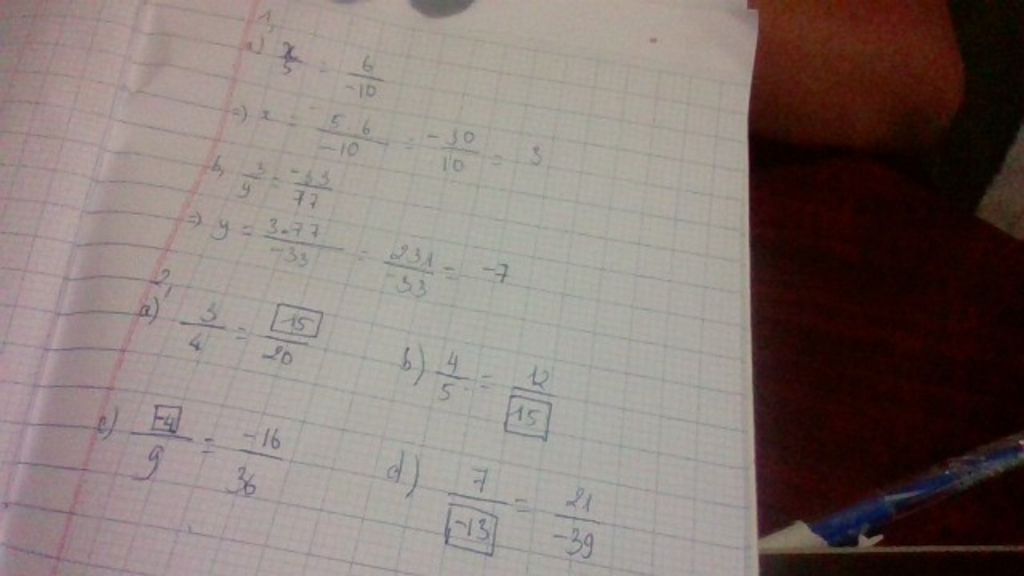 1,
a) x/5 = 6/-10
=) x = 5 . 6/-10 = -30/10 = 3
b, 3/y = -33/77
=) y = 3.77/-33 = 231/-33 = -7
2,
a) 3/4 = 15/20
b) 4/5 = 12/15
c) -4/9 = -16/36
d) 7/-13 = 21/-39